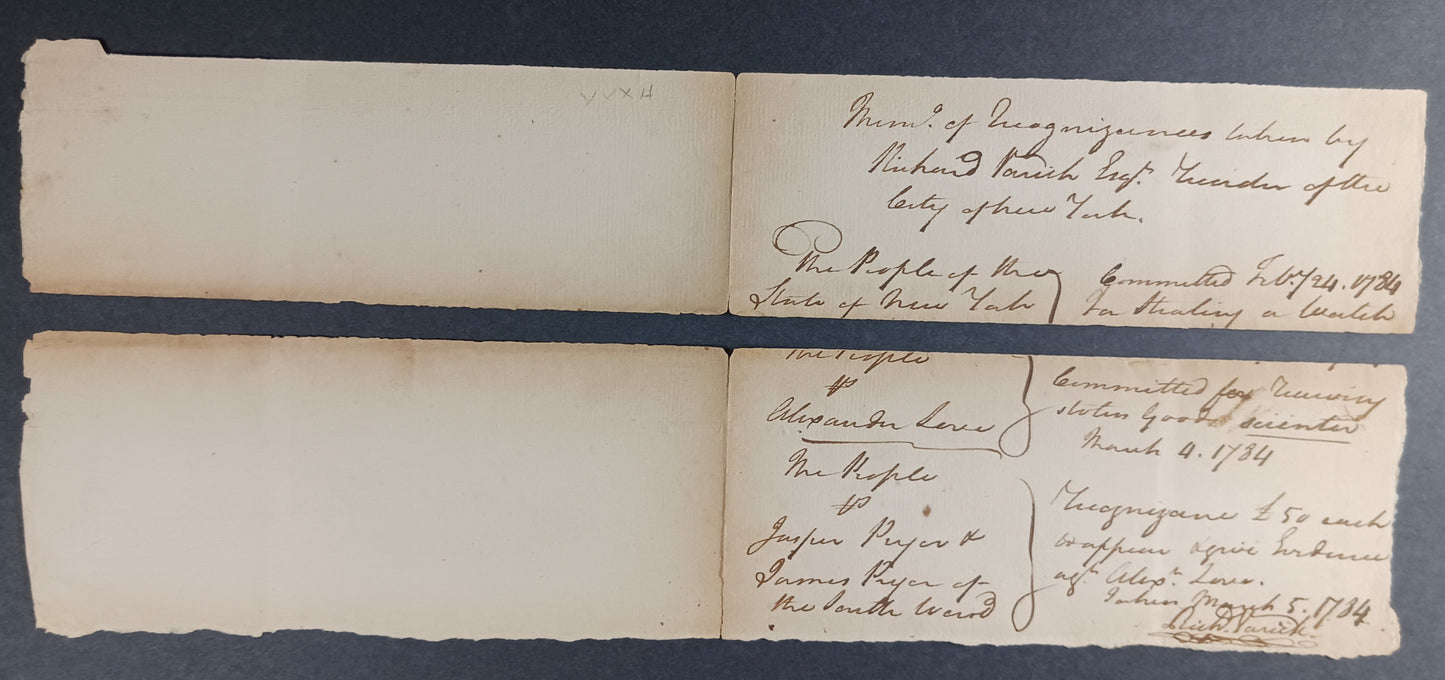 Memo. of Recognizances taken by
Richard Varick Esqr. Recorder of the
City of New York.
The People of the
State of New York
Committed Feby. 24. 1784
for Stealing a Watch
The People
vs
Alexander Love
Committed for Receiving
stolen Goods scienter
March 4. 1784
The People
vs
Jasper Pryor &
James Pryor of
the South Ward
Recognizance £50 each
to appear & give Evidence
agt. Alexr. Love.
Taken March 5. 1784
Richd. Varick